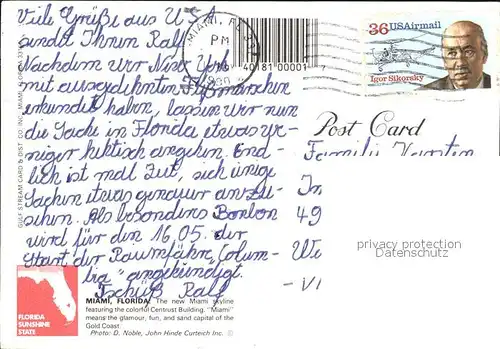 Viele Grüße aus USA
sendet Ihnen Ralf
Nachdem wir New York
mit ausgedehnten Fußmärschen
erkundet haben, lassen wir nun
die Sache in Florida etwas we-
niger hektisch angehen. End-
lich ist mal Zeit, sich einige
Sachen etwas genauer anzu-
sehen. Als besonderes Bonbon
wird für den 16.05. der
Start der Raumfähre „Colum-
bia" angekündigt.
Tschüß Ralf
MIAMI, FL
PM
1990
40181 00001 7
36 USAirmail
Igor Sikorsky
Post Card
Familie
49
privacy protection
Datenschutz
GULF STREAM CARD & DIST. CO. INC. MIAMI, FLORIDA
FLORIDA
SUNSHINE
STATE
MIAMI, FLORIDA: The new Miami skyline
featuring the colorful Centrust Building. "Miami"
means the glamour, fun, and sand capital of the
Gold Coast.
Photo: D. Noble, John Hinde Curteich Inc. ©